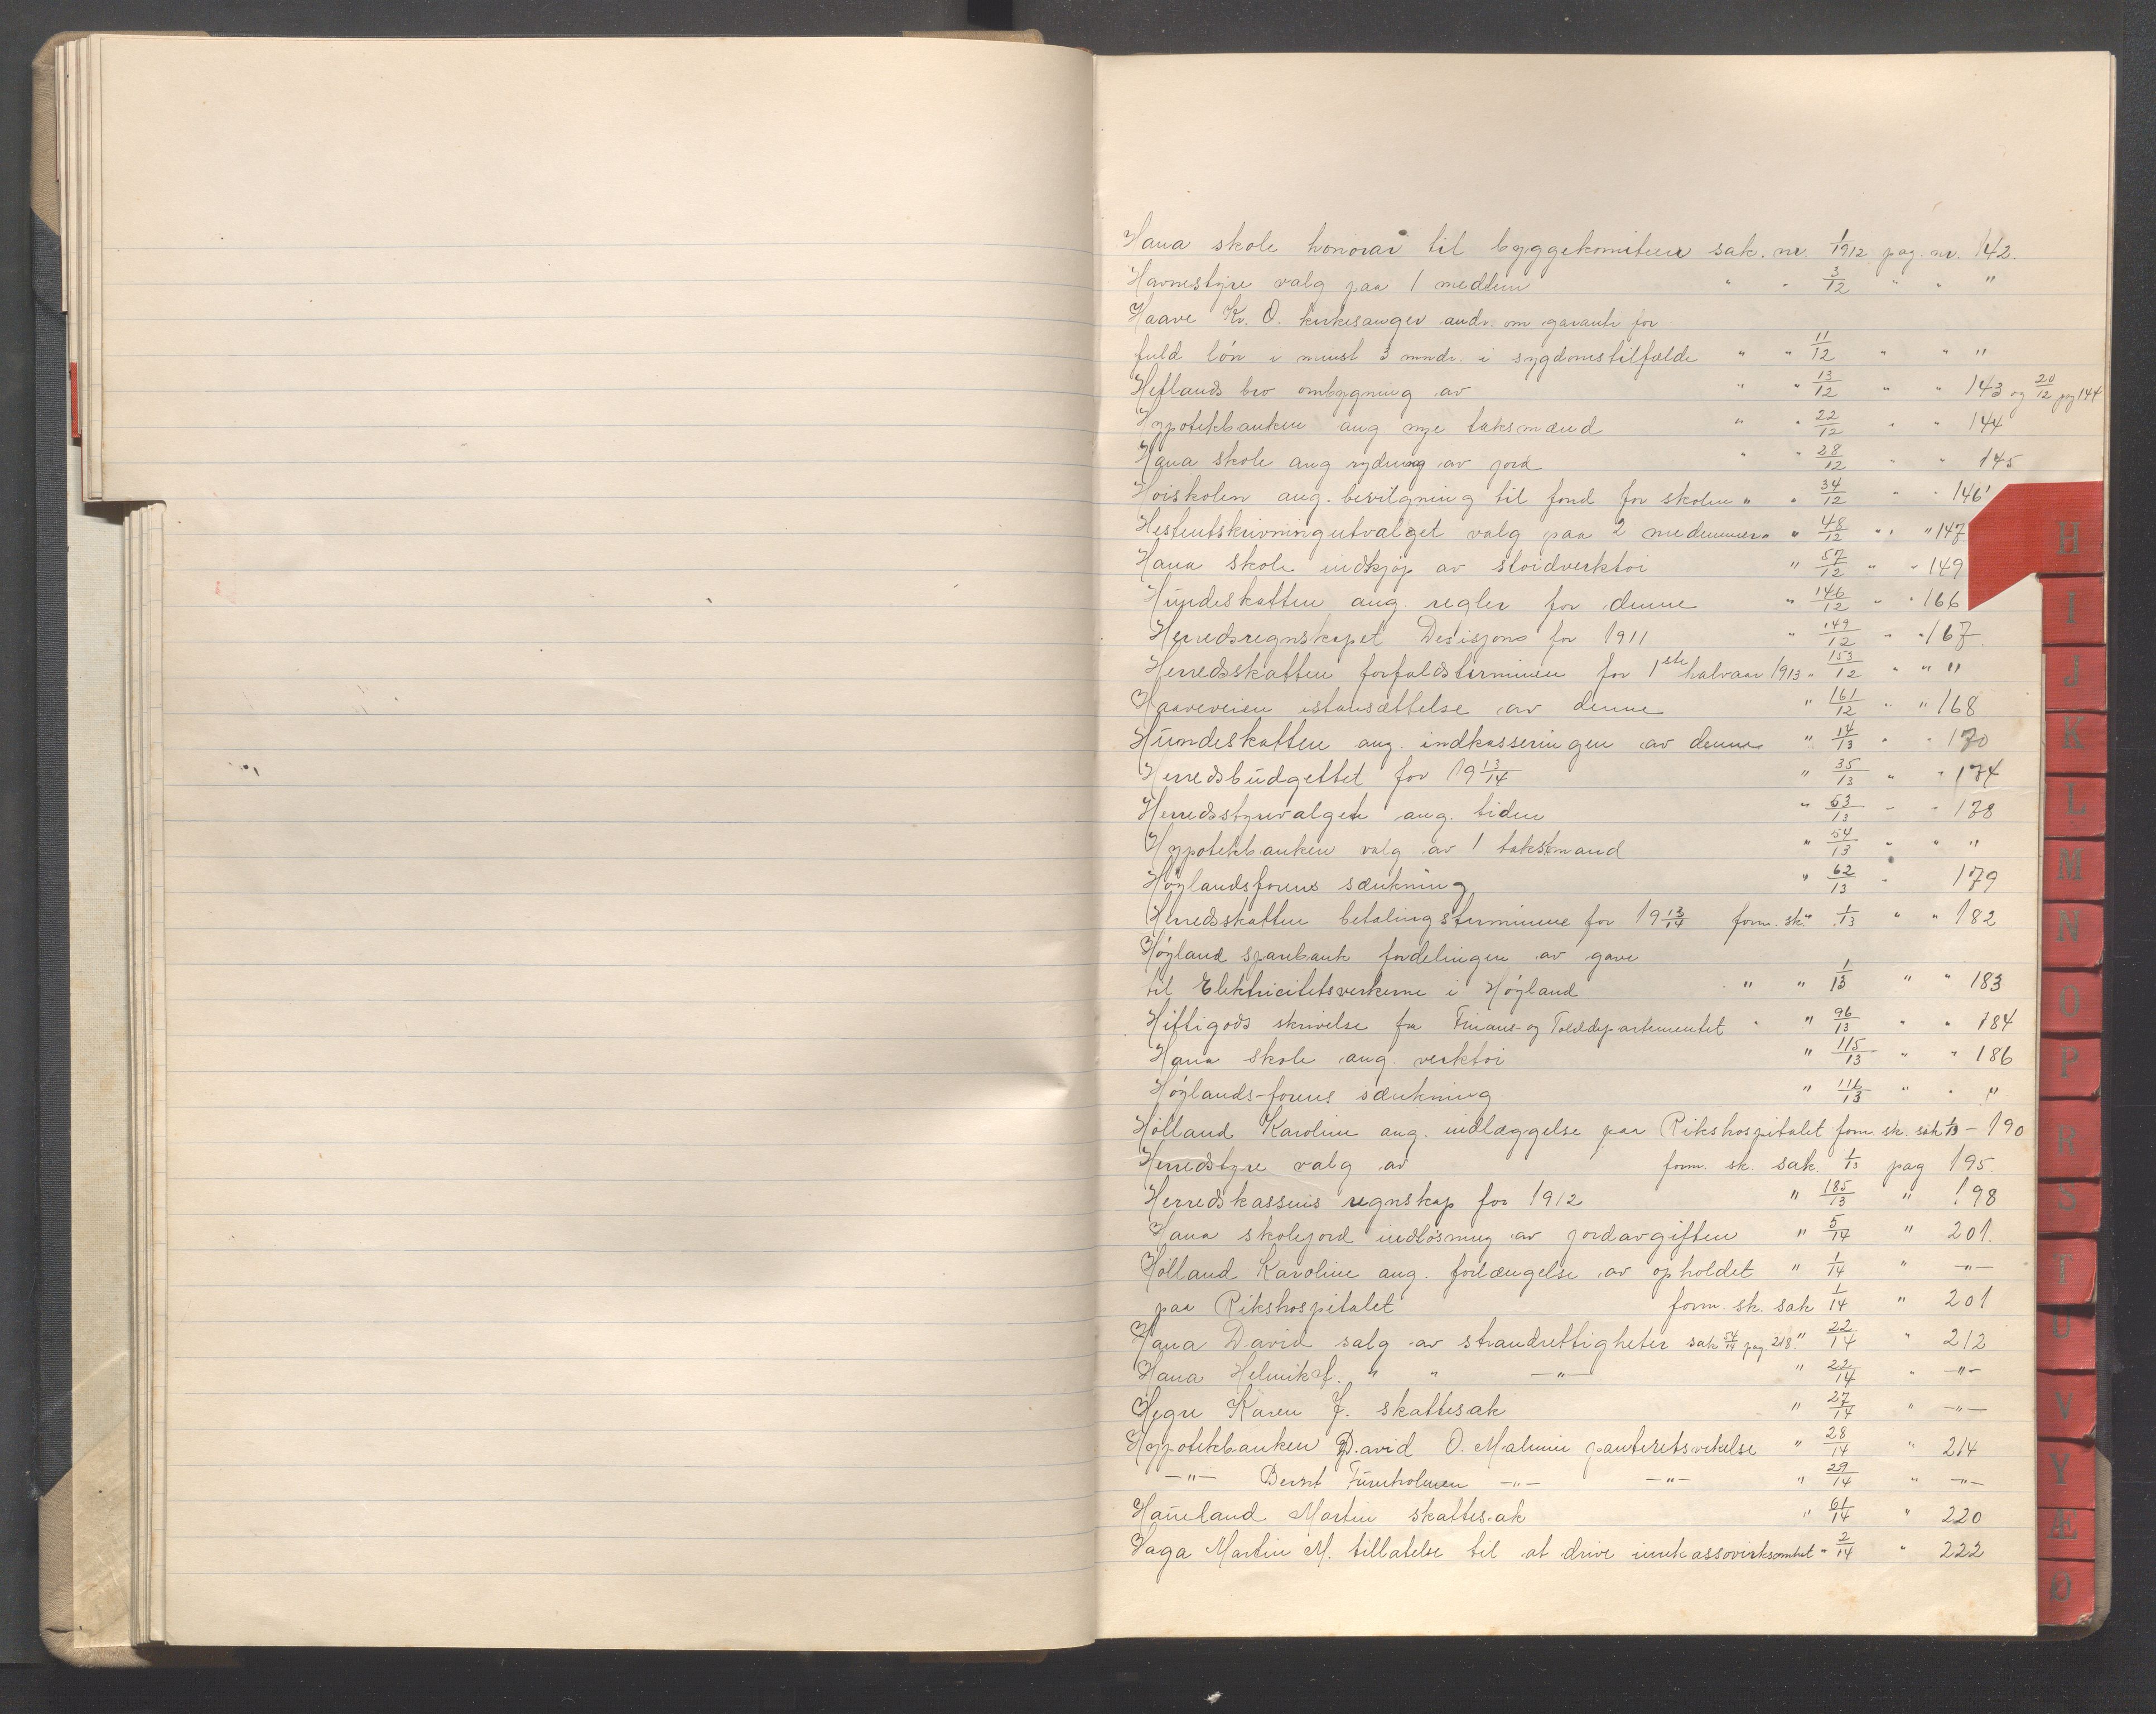 Hana skole honorar til byggekomiteen sak. nr. 1/1912 pag. nr. 142.
Havnestyre valg paa 1 medlem " " 3/12 " " "
Haave Kr. O. kirkesanger andr. om garanti for
fuld lön i minst 3 mndr. i sygdomstilfælde " " 11/12 " " "
Hetlands bro ombygning av " " 13/12 " " 143 og 20/12 pag 144
Hypotekbanken ang nye taksmænd " " 22/12 " " 144
Hana skole ang rydning av jord " " 28/12 " " 145
Höiskolen ang. bevilgning til fond for skolen " " 34/12 " " 146
Hesteutskrivningutvalget valg paa 2 medemmer " " 48/12 " " 147
Hana skole indkjøp av sløidverktøi " 57/12 " " 149
Hundeskatten ang. regler for denne " 146/12 " " 166
Herredsregnskapet Desisjons for 1911 " 149/12 " " 167
Herredsskatten forfaldsterminen for 1ste halvaar 1913 " 153/12 " " "
Haaveveien istansættelse av denne " 161/12 " " 168
Hundeskatten ang. indkasseringen av denne " 14/13 " " 170
Herredsbudgettet for 19 13/14 " 35/13 " " 174
Herredsstyrevalget ang. tiden " 53/13 " " 178
Hypotekbanken valg av 1 takstmand " 54/13 " " "
Höglandsforens sænkning " 62/13 " 179
Herredsskatten betalingsterminene for 19 13/14 form. sk. " 1/13 " " 182
Höyland sparebank fordelingen av gave
til Elektricitetsverkerne i Höyland " " 1/13 " " 183
Hittigods skrivelse fra Finans- og Tolddepartementet " " 96/13 " " 184
Hana skole ang. verktöi " 115/13 " " 186
Höylands-forens sænkning " 116/13 " " "
Hölland Karoline ang. indlæggelse paa Rikshospitalet form. sk. sak 1/13 - 190
Herredstyre valg av form. sk. sak. 1/13 pag 195.
Herredskassens regnskap for 1912 " 185/13 " 198
Hana skolejord indlösning av jordavgiften " 5/14 " 201.
Hölland Karoline ang. forlængelse av opholdet " 1/14 " -"-
paa Rikshospitalet form. sk. sak 1/14 " 201
Hana David salg av strandrettigheter sak 54/14 pag 218. " 22/14 " 212
Hana Helmik " " -"- " 22/14 " -"-
Hegre Karen J. skattesak " 27/14 " -"-
Hypotekbanken David O. Malmin panteretsvikelse " 28/14 " 214
-"- Bernt Furuholmen -"- -"- " 29/14 " -"-
Haueland Martin skattesak " 61/14 " 220
Haga Martin M. tillatelse til at drive innkassovirksomhet " 2/14 " 222
H
I
J
K
L
M
N
O
P
R
S
T
U
V
Y
Æ
Ø